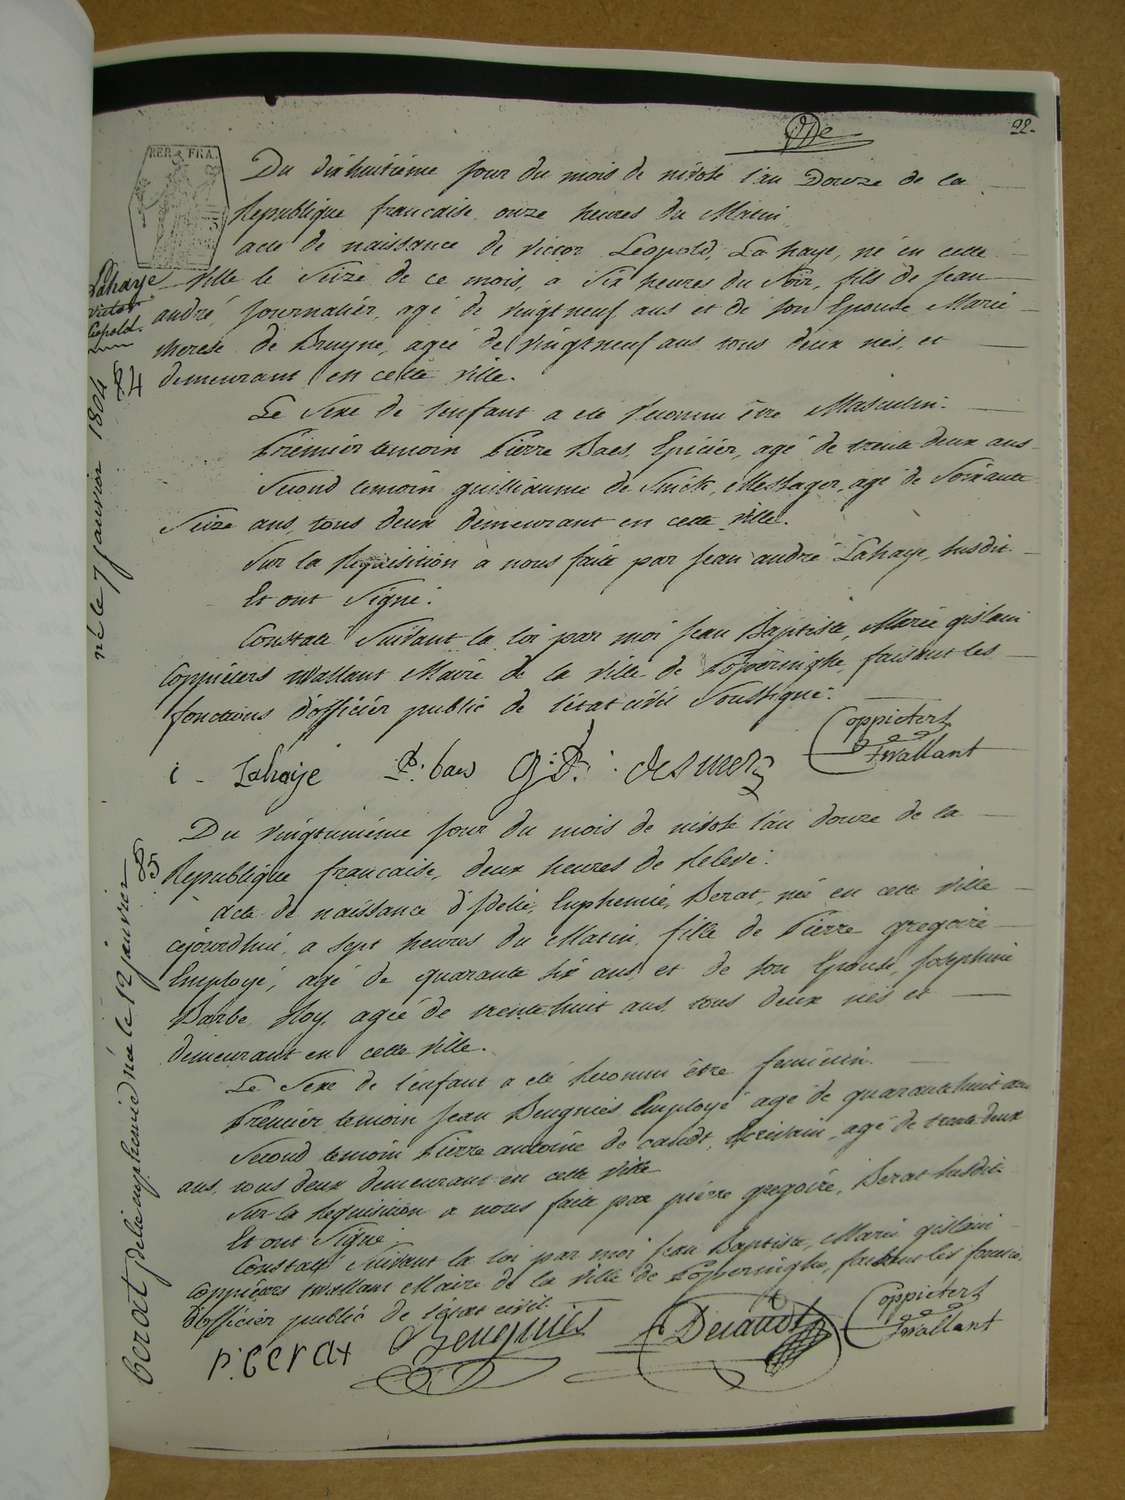 22.
REP. FRA.
Du dixhuitième jour du mois de nivose l'an Douze de la
Republique francaise onze heures du Matin
acte de naissance de victor Leopold, Lahaye, né en cette
ville le Seize de ce mois, a Six heures du Soir, fils de Jean
andré, journalier, agé de vingtneuf ans et de son Epouse Marie
therese de Bruyne, agée de vingtneuf ans tous deux nés, et
demeurant en cette ville.
Lahaye
victor
Leopold.
84
né le 7 janvier 1804
Le Sexe de l'enfant a eté reconnu être Masculin.
Prémier temoin Pierre Baes, Epicier, agé de trente deux ans
Second temoin guilliaume de Smck, Messager, agé de Soixante
Seize ans, tous deux demeurant en cette ville.
Sur la Requisition a nous faite par Jean andré Lahaye, susdit.
Et ont Signé.
Constaté Suivant la loi par moi Jean Baptiste, Marie gislain
Coppieters Wallant Maire de la ville de Poperinghe, faisant les
fonctions d'officier public de l'état civil Soussigné.
Lahaye P. baes G: D: desmer
Coppieters
Wallant
Du vingtunième jour du mois de nivose l'an douze de la
Republique francaise, deux heures de Relevé.
85
acte de naissance d'Idelie, Euphemie, Berat, née en cette ville
cejourdhui, a sept heures du Matin, fille de Pierre gregoire
Employé, agé de quarante six ans, et de son Epouse, Josephine
Barbe Hoy, agée de trentehuit ans, tous deux nés et
demeurant en cette ville.
berat idelie euphemie née le 12 janvier
Le Sexe de l'enfant a eté Reconnu être feminin.
Premier temoin Jean Beugnies Employé agé de quarantehuit ans
Second temoin Pierre antoine de candt, Ecrivain, agé de trente deux
ans, tous deux demeurant en cette ville
Sur la Requisition a nous faite par pierre gregoire, Berat susdit.
Et ont Signé.
Constaté Suivant la loi par moi Jean Baptiste, Marie gislain
Coppieters Wallant Maire de la ville de Poperinghe, faisant les fonctions
d'officier public de l'état civil.
P. berat Beugnies Decandt
Coppieters
Wallant